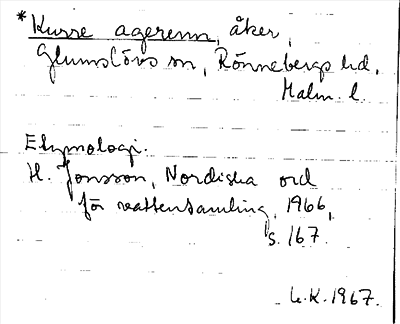 *Kurre agerenn, åker,
Glumslövs sn, Rönnebergs hd,
Malm. l.
Etymologi.
H. Jonsson, Nordiska ord
för vattensamling, 1966,
s. 167.
L.K. 1967.